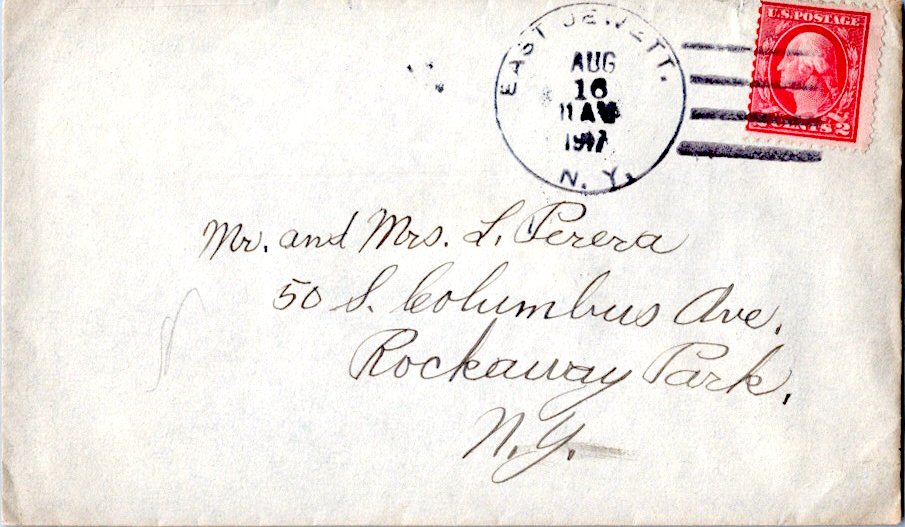 EAST JEWETT.
AUG
16
11 AM
1917
N. Y.
U.S. POSTAGE
2 CENTS 2
Mr. and Mrs. L. Perera
50 S. Columbus Ave.
Rockaway Park,
N.Y.